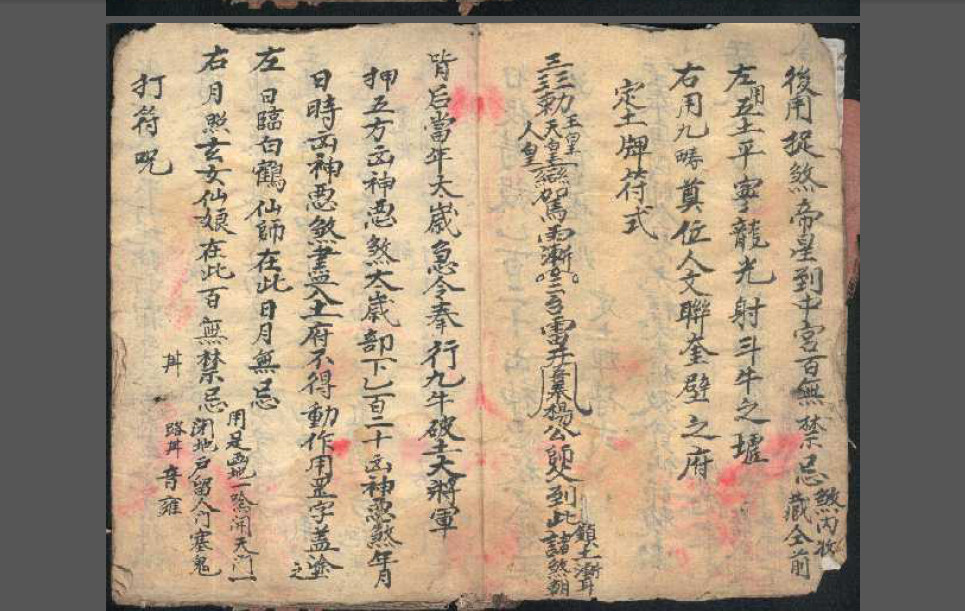 後用捉煞帝星到中宮百無禁忌
煞內收
藏全前
左用五土平寧龍光射斗牛之墟
右用九疇奠位人文聯奎壁之府
定土牌符式
勅
玉皇
天皇
人皇
鸞駕
雷
楊公師
到此諸煞朝
鎮土
皆后當年太歲急令奉行九牛破土大將軍
押五方凶神惡煞太歲部下乙百二十凶神惡煞年月
日時凶神惡煞盡入土府不得動作用罡字蓋塗之
左日臨白鶴仙師在此日月無忌
右月照玄女仙娘在此百無禁忌
用是
開天門一
閉地戶留人門塞鬼
路
打符呪